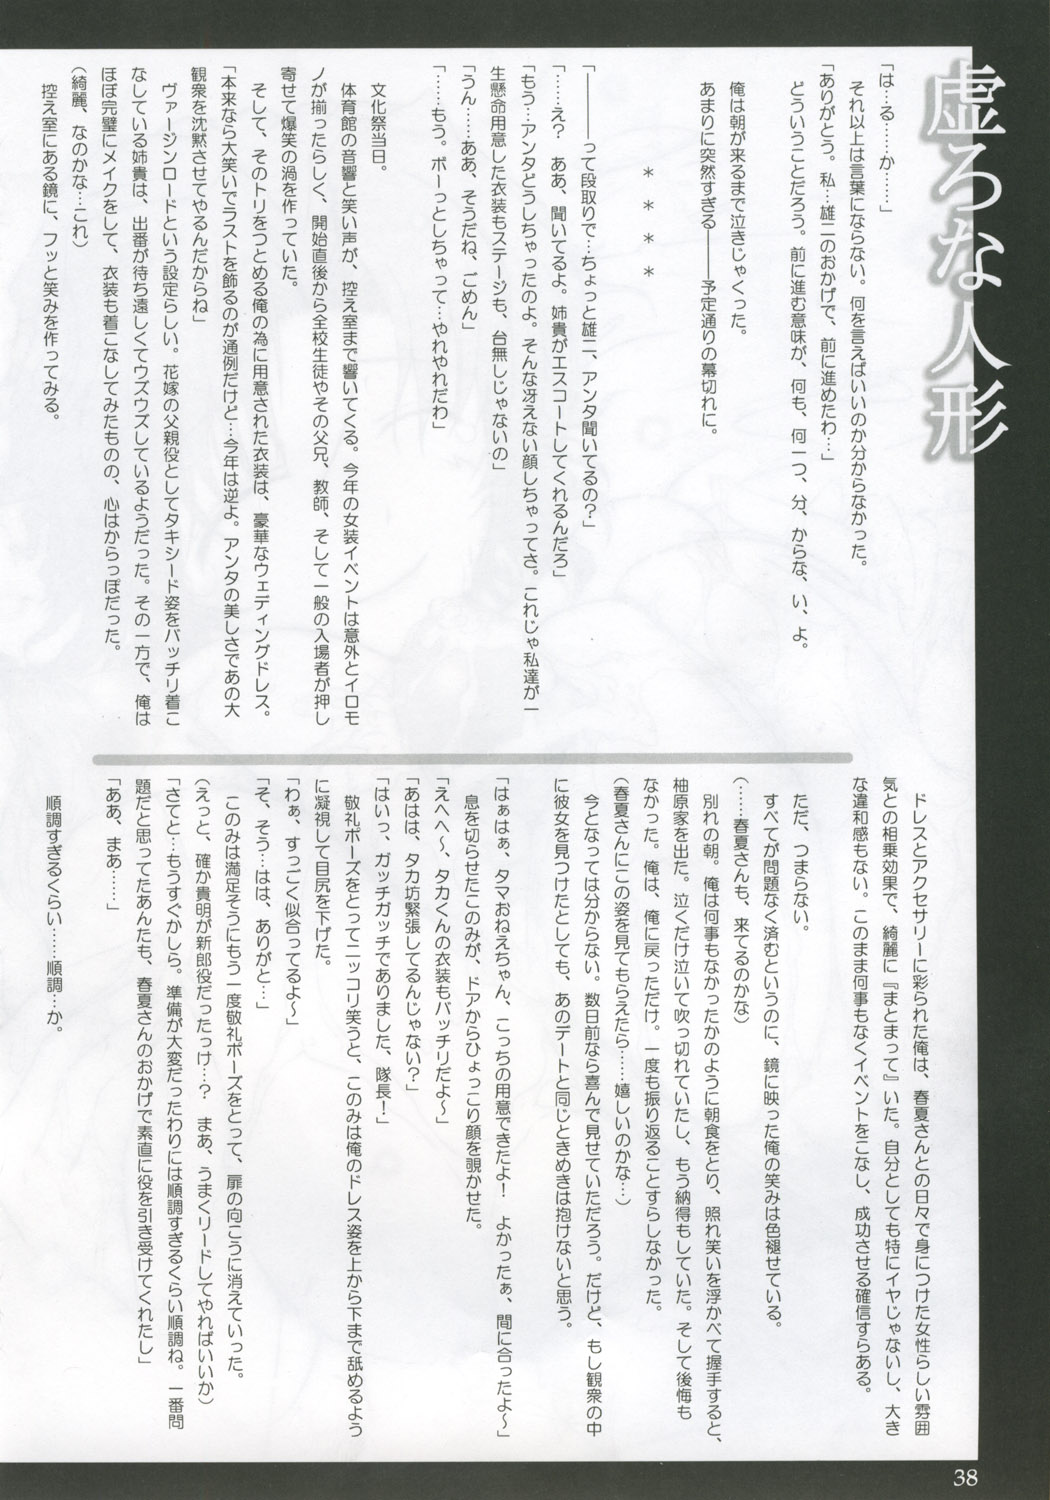 虚ろな人形
「は…る……か……」
それ以上は言葉にならない。何を言えばいいのか分からなかった。
「ありがとう。私…雄二のおかげで、前に進めたわ…」
どういうことだろう。前に進む意味が、何も、何一つ、分、からな、い、よ。
俺は朝が来るまで泣きじゃくった。
あまりに突然すぎる――予定通りの幕切れに。
＊　＊　＊　＊
「―――って段取りで…ちょっと雄二、アンタ聞いてるの？」
「……え？　ああ、聞いてるよ。姉貴がエスコートしてくれるんだろ」
「もう…アンタどうしちゃったのよ。そんな冴えない顔しちゃってさ。これじゃ私達が一
生懸命用意した衣装もステージも、台無しじゃないの」
「うん……ああ、そうだね、ごめん」
「……もう。ボーっとしちゃって…やれやれだわ」
文化祭当日。
体育館の音響と笑い声が、控え室まで響いてくる。今年の女装イベントは意外とイロモ
ノが揃ったらしく、開始直後から全校生徒やその父兄、教師、そして一般の入場者が押し
寄せて爆笑の渦を作っていた。
そして、そのトリをつとめる俺の為に用意された衣装は、豪華なウェディングドレス。
「本来なら大笑いでラストを飾るのが通例だけど…今年は逆よ。アンタの美しさであの大
観衆を沈黙させてやるんだからね」
ヴァージンロードという設定らしい。花嫁の父親役としてタキシード姿をバッチリ着こ
なしている姉貴は、出番が待ち遠しくてウズウズしているようだった。その一方で、俺は
ほぼ完璧にメイクをして、衣装も着こなしてみたものの、心はからっぽだった。
（綺麗、なのかな…これ）
控え室にある鏡に、フッと笑みを作ってみる。
ドレスとアクセサリーに彩られた俺は、春夏さんとの日々で身につけた女性らしい雰囲
気との相乗効果で、綺麗に『まとまって』いた。自分としても特にイヤじゃないし、大き
な違和感もない。このまま何事もなくイベントをこなし、成功させる確信すらある。
ただ、つまらない。
すべてが問題なく済むというのに、鏡に映った俺の笑みは色褪せている。
（……春夏さんも、来てるのかな）
別れの朝。俺は何事もなかったかのように朝食をとり、照れ笑いを浮かべて握手すると、
柚原家を出た。泣くだけ泣いて吹っ切れていたし、もう納得もしていた。そして後悔も
なかった。俺は、俺に戻っただけ。一度も振り返ることすらしなかった。
（春夏さんにこの姿を見てもらえたら……嬉しいのかな…）
今となっては分からない。数日前なら喜んで見せていただろう。だけど、もし観衆の中
に彼女を見つけたとしても、あのデートと同じときめきは抱けないと思う。
「はぁはぁ、タマおねえちゃん、こっちの用意できたよ！　よかったぁ、間に合ったよ～」
息を切らせたこのみが、ドアからひょっこり顔を覗かせた。
「えへへ～、タカくんの衣装もバッチリだよ～」
「あはは、タカ坊緊張してるんじゃない？」
「はいっ、ガッチガッチでありました、隊長！」
敬礼ポーズをとってニッコリ笑うと、このみは俺のドレス姿を上から下まで舐めるよう
に凝視して目尻を下げた。
「わぁ、すっごく似合ってるよ～」
「そ、そう…はは、ありがと…」
このみは満足そうにもう一度敬礼ポーズをとって、扉の向こうに消えていった。
（えっと、確か貴明が新郎役だったっけ…？　まあ、うまくリードしてやればいいか）
「さてと…もうすぐかしら。準備が大変だったわりには順調すぎるくらい順調ね。一番問
題だと思ってたあんたも、春夏さんのおかげで素直に役を引き受けてくれたし」
「ああ、まあ……」
順調すぎるくらい……順調…か。
38